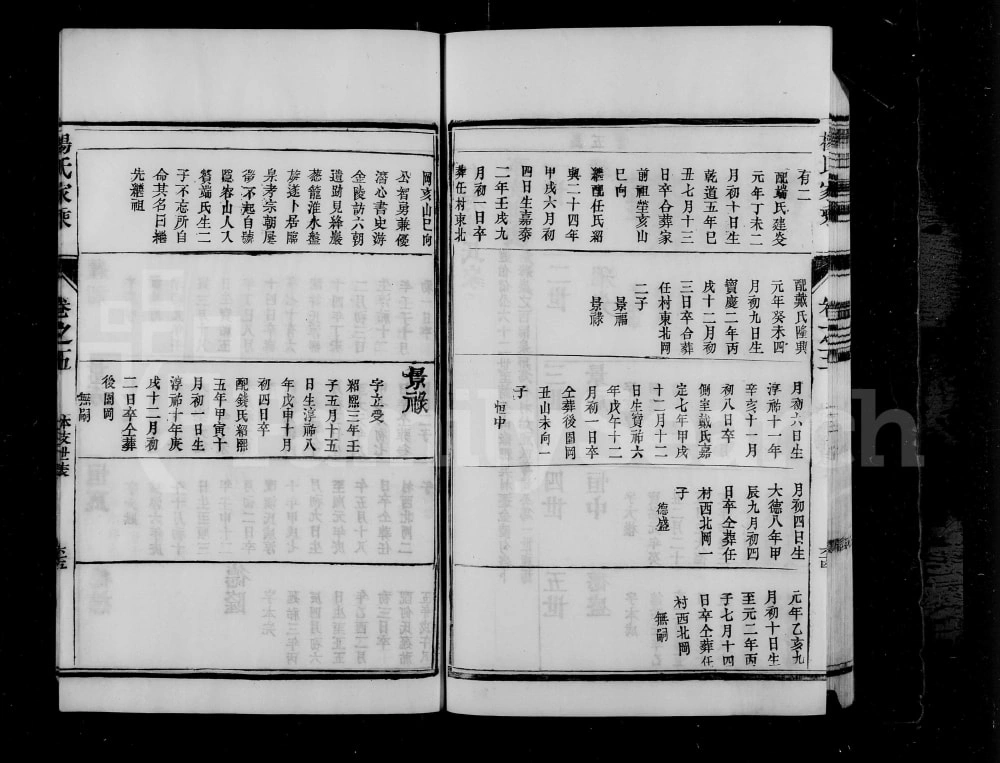 有二
配端氏建炎
元年丁未二
月初十日生
乾道五年巳
丑七月十三
日卒合葬家
前祖塋亥山
巳向
繼配任氏紹
興二十四年
甲戌六月初
四日生嘉泰
二年壬戌九
月初一日卒
葬任村東北
配戴氏隆興
元年癸未四
月初九日生
寶慶二年丙
戌十二月初
三日卒合葬
任村東北岡
二子
景福
景祿
月初六日生
淳祐十一年
辛亥十一月
初八日卒
側室戴氏嘉
定七年甲戌
十二月十二
日生寶祐六
年戊午十二
月初一日卒
仝葬後園岡
丑山未向一
子
恒中
月初四日生
大德八年甲
辰九月初四
日卒仝葬任
村西北岡一
子
德盛
元年乙亥九
月初十日生
至元二年丙
子七月十四
日卒仝葬任
村西北岡
無嗣
楊氏家乘
卷之五
本支世表
岡亥山巳向
公智勇兼優
潛心書史游
金陵訪六朝
遺蹟見絳巖
葱蘢淮水盤
遂卜居臨
泉孝宗朝屢
徵不起自號
隱客山人入
贅端氏生二
子不忘所自
命其名曰繼
先繼祖
景祿
字立受
紹熙三年壬
子五月十五
日生淳祐八
年戊申十月
初四日卒
配錢氏紹熙
五年甲寅十
月初一日生
淳祐十年庚
戌十二月初
二日卒仝葬
後園岡
無嗣